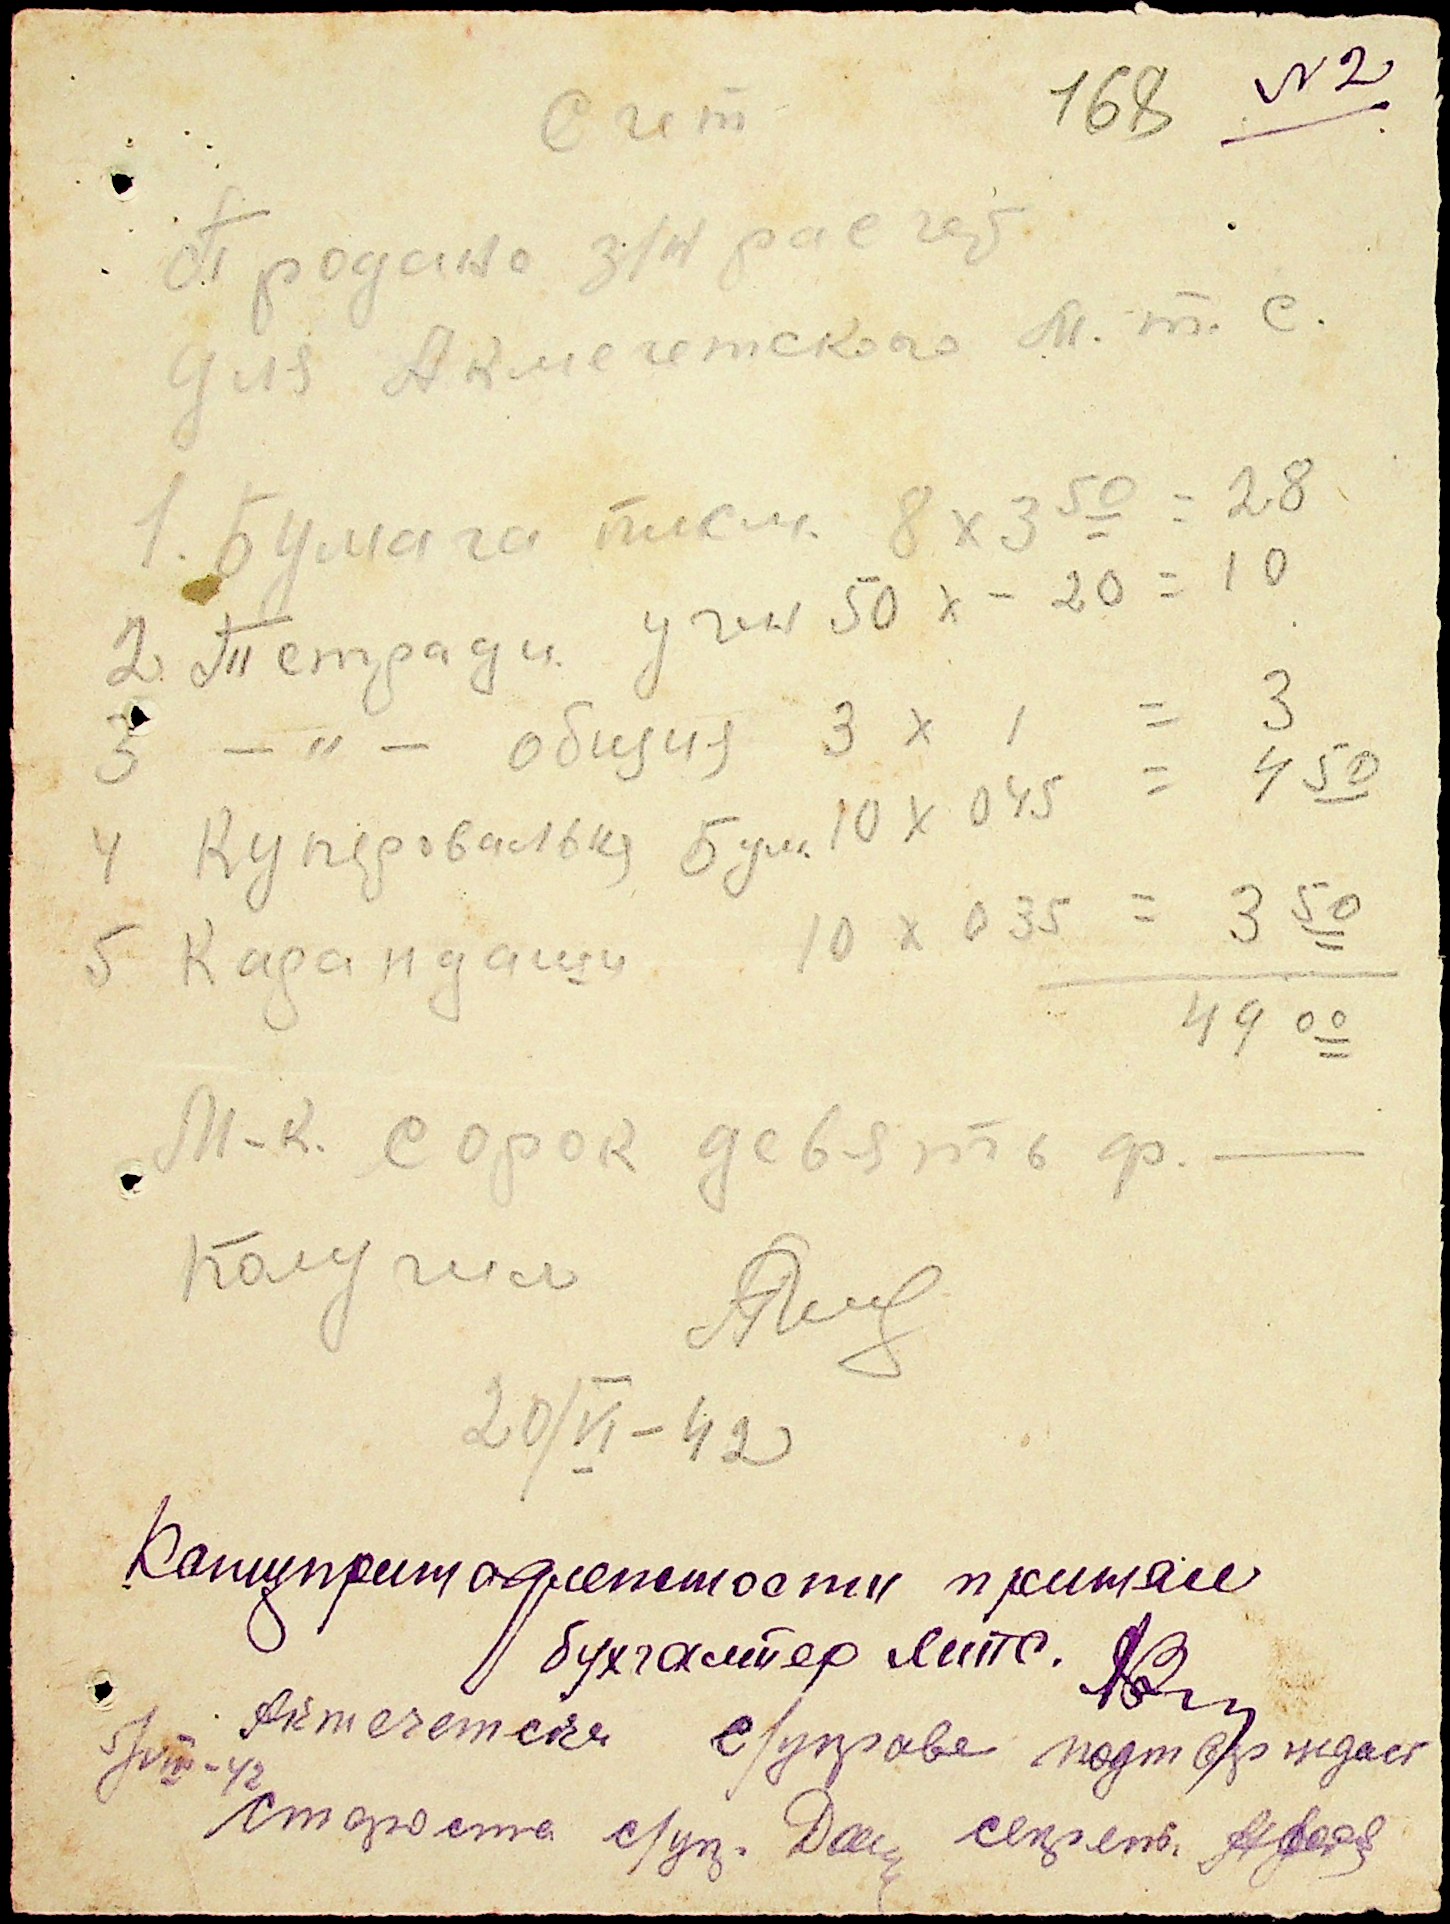 168 N 2
Счет
Продано з/н расчет
для Акмечетского М. т. С.
1. Бумага писм. 8 x 3 50 = 28
2 Тетради учен 50 x - 20 = 10
3 - " - общия 3 x 1 = 3
4 Купировальня Бум. 10 x 0 45 = 4 50
5 Карандаши 10 x 0 35 = 3 50
49 00
М-к. Сорок девять ф. —
Получил
20/VI - 42
Канцпринадлежности принял
бухгалтер МТС.
Акмечетская с/управа подтверждает
5/VIII - 42
Староста с/упр. секрет.